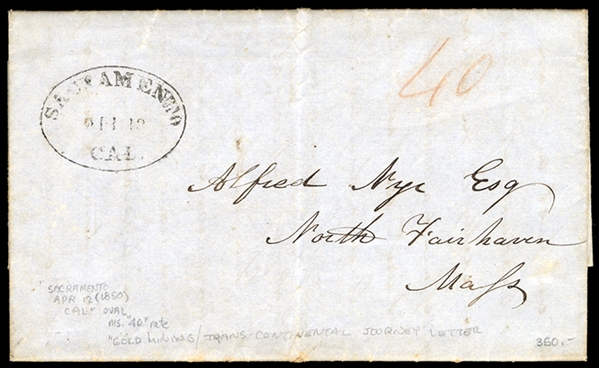 SACRAMENTO
CAL.
40
Alfred Nye Esq
North Fairhaven
Mass
SACRAMENTO
APR 12 (1850)
CAL" OVAL
ms. "40" rate
"GOLD MINING / TRANS-CONTINENTAL JOURNEY LETTER
350.-